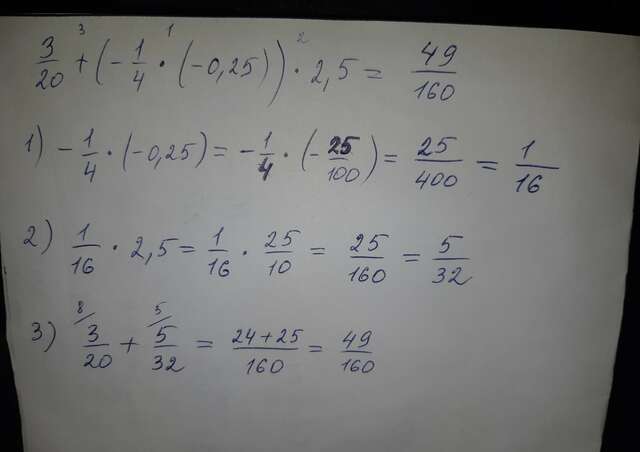 3/20 + (-1/4 · (-0,25)) · 2,5 = 49/160
1) -1/4 · (-0,25) = -1/4 · (-25/100) = 25/400 = 1/16
2) 1/16 · 2,5 = 1/16 · 25/10 = 25/160 = 5/32
3) 3/20 + 5/32 = 24+25/160 = 49/160